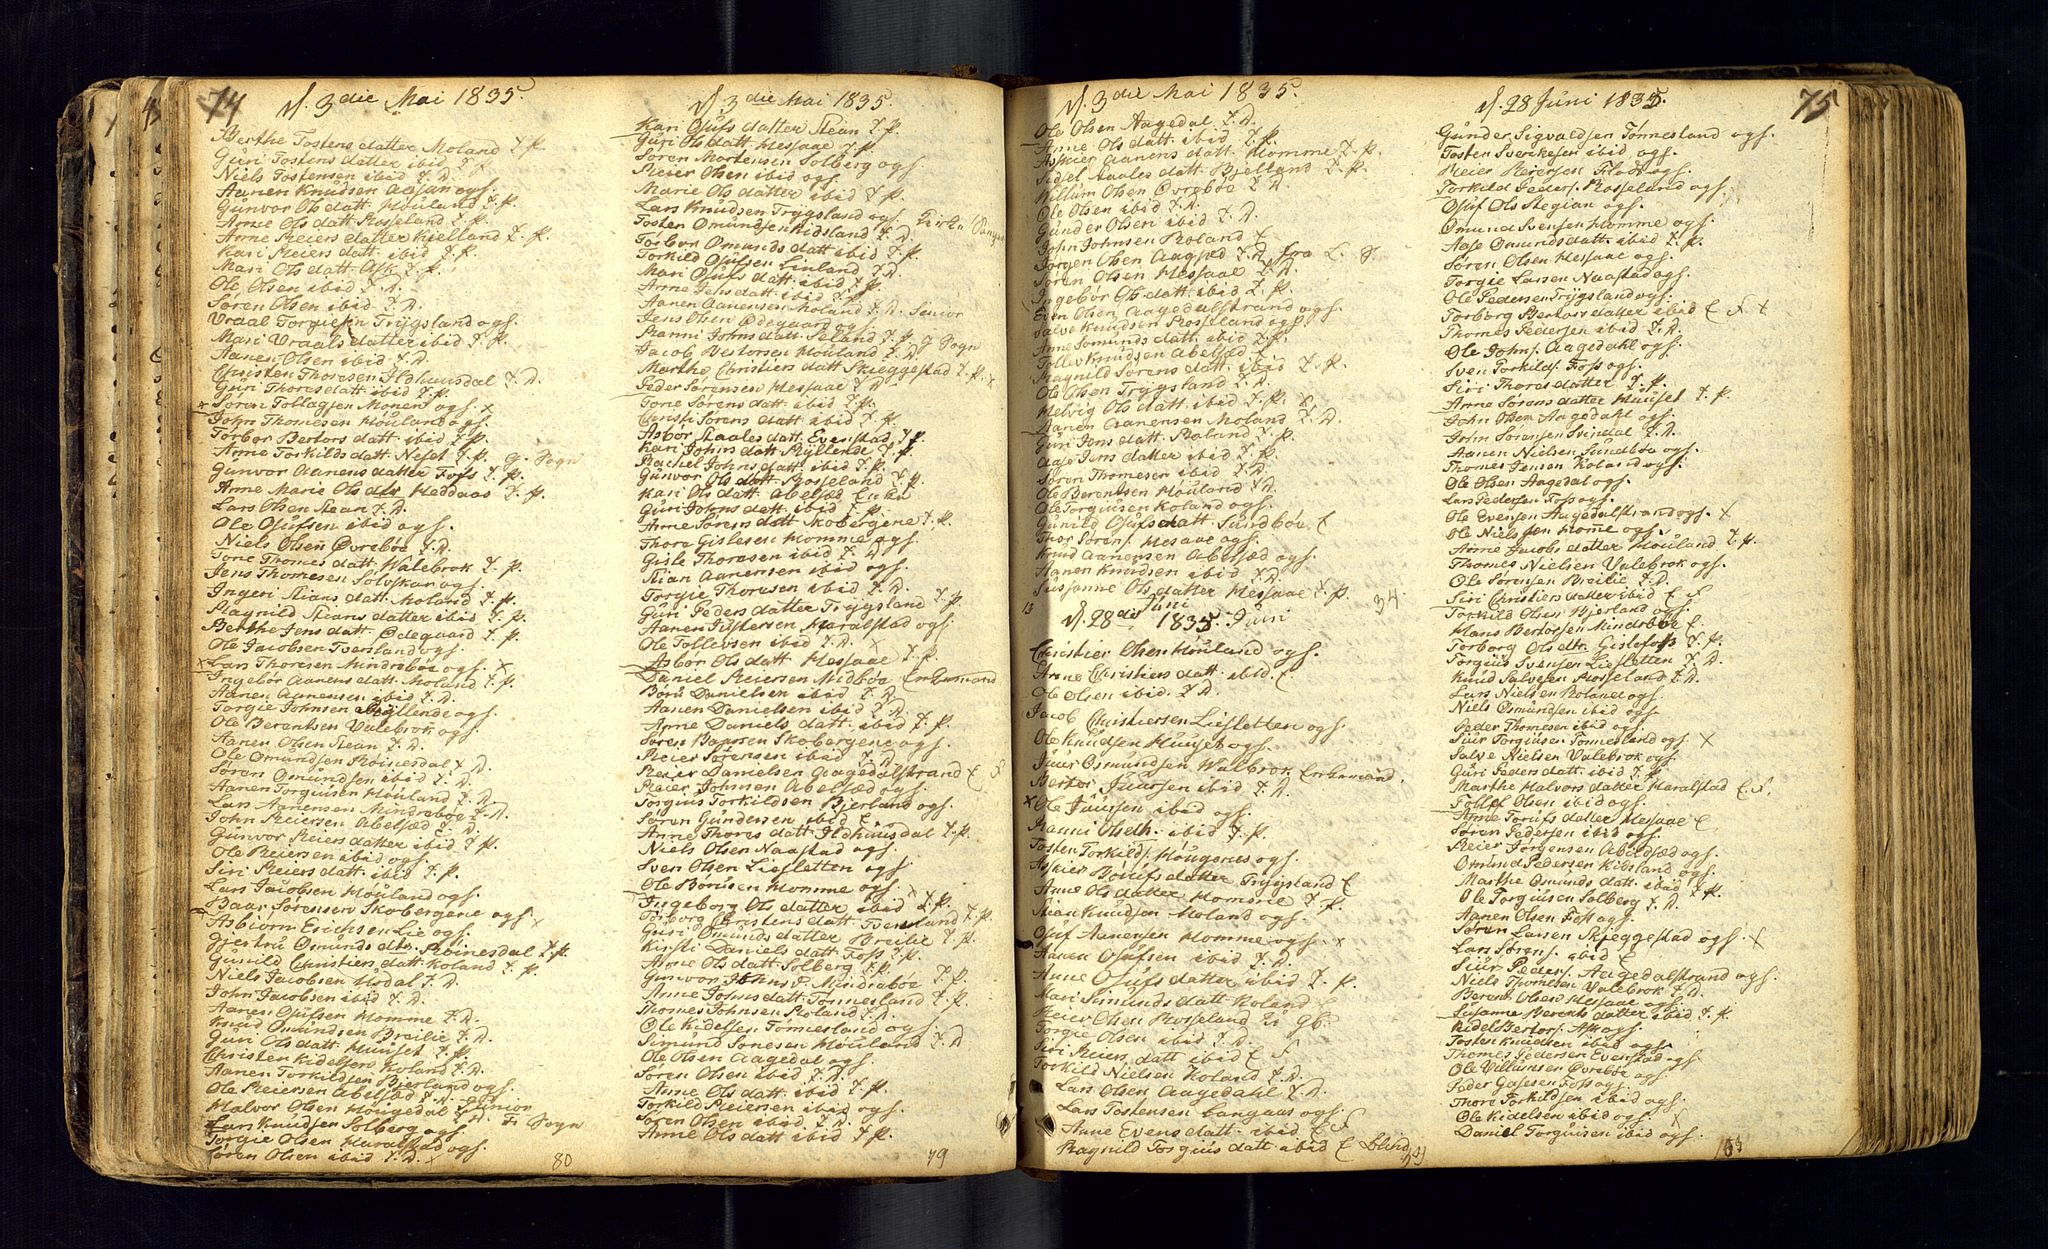 74
d. 3die Mai 1835.
Berthe Tostens datter Moland T. P.
Guri Tostens datter ibid T. P.
Niels Tostensen ibid T. D.
Aanen Knudsen ogs.
Gunvor Ols datt. Houland T. P.
Anne Ols datt. Rosseland T. P.
Anne Reiers datter Kielland T. P.
Kari Reiers datt. ibid T. P.
Mari Ols datt. Ask T. P.
Ole Olsen ibid T. D.
Søren Olsen ibid T. D.
Vraal Torgiesen Trygsland ogs.
Mari Vraals datter ibid T. P.
Aanen Olsen ibid T. D.
Christen Thoresen Ildhuusdal T. D.
Guri Thores datt. ibid T. P.
x Søren Tollagsen Monen ogs. x
John Thomesen Houland ogs.
Torbor Bertors datt. ibid T. P.
Anne Torkilds datt. Neset T. P. G. Sogn
Gunvor Aanens datter Foss T. P.
Anne Marie Ols dtr Heddaas T. P.
Lars Olsen Stean T. D.
Ole Osufsen ibid ogs.
Niels Olsen Øvrebøe T. D.
Tone Thomes datt. Walebrok T. P.
Jens Thomesen Solvskar ogs.
Ingeri Stians datt. Moland T. P.
Ragnild Steans datter ibid T. P.
Berthe Jens datt. Ødegaard T. P.
Ole Jacobsen Tversland ogs.
x Lars Thoresen Mindrebøe ogs. x
Ingebor Aanens datt. Moland T. P.
Aanen Aanensen ibid T. D.
Torgie Johnsen Ryllende ogs.
Ole Berentsen Valebrok ogs.
Aanen Olsen Stean T. D.
Ole Omundsen Roinesdal x D.
Søren Omundsen ibid T. D.
Aanen Torguisen Houland T. D.
Lars Aanensen Mindrebøe T. D.
John Reiersen Abelsæd E. D.
Gunvor Reiers datter ibid T. P.
Ole Reiersen ibid ogs.
Siri Reiers datt. ibid T. P.
Lars Jacobsen Houland ogs.
Baar Sørensen Skobergene ogs. x
Asbiørn Erichsen Lie ogs.
Giertru Omunds dtr. Roinesdal T. P.
Gunild Christiens datt. Roland T. P.
Niels Jacobsen Hodal T. D.
John Jacobsen ibid T. D.
Aanen Osufsen Homme T. D.
Knud Omundsen Breilie T. D.
Guri Ols datt. Hunset T. P.
Christen Kidelsen Roland T. D.
Aanen Torkildsen Bjerland ogs.
Ole Reiersen Abelsæd T. D. Junior
Halvor Olsen Hougedal T. D. Fi Sogn
Lars Knudsen Solberg ogs.
Torgie Olsen Haralstad ogs.
Søren Olsen ibid T. D. x
80
d. 3die Mai 1835.
Kari Osufs datter Stean T. P.
Guri Ols datt. Messaae T. P.
Søren Mortensen Solberg ogs
Reier Olsen ibid ogs
Marie Ols datter ibid T. P.
Lars Knudsen Trygsland ogs
Tosten Omundsen Kidsland T. D.
Torbor Omunds datt. ibid T. P.
Torkild Osufsen Linland T. D.
Mari Osufs datt. ibid T. P.
Anne Jens datt. ibid T. P.
Aanen Aanensen Moland T. D. Senior
Jens Olsen Ødegaard ogs
Ranni Johns datt. Seland T. P. G Sogn
Jacob Vestorsen Houland T. D.
Marthe Christiens datt Skieggestad T. P. x
Peder Sørensen Messaae T. D.
Tone Sørens datt. ibid T. P.
Christi Sørens datt. ibid T. P.
Asbor Staales datt. Evenstad T. P
Kari Johns datt. Ryllende T. P
Rachel Johns datt. ibid T. P.
Gunvor Ols datt. Rosseland T. P.
Kari Ols datt. Abelsæd Enke
Guri Johns datt. ibid T. P.
Anne Sørens datt Skobergene T. P.
Thore Gislesen Homme ogs.
Gisle Thoresen ibid ogs.
Stian Aanensen ibid ogs.
Torgie Thoresen ibid T. D.
Guri Peders datter Trygsland T. P.
Aanen Justersen Haralstad ogs.
Ole Tollevsen ibid T. D. x
Asbør Ols datt Messaae T. P.
Daniel Reiersen Midbøe Enkemand
Boru Danielsen ibid T. D.
Aanen Danielsen ibid T. D.
Anne Daniels datt. ibid T. P.
Søren Baarsen Skobergene ogs.
Reier Sørensen ibid T. D.
Reier Danielsen Aagedalstrand E F
Reier Johnsen Abelsæd ogs.
Torguis Torkildsen Bjerland ogs.
Søren Gundersen ibid E
Anne Thores datt Ildhuusdal T. P.
Niels Olsen Naastad ogs.
Sven Olsen Liesletten ogs
Ole Borusen Homme ogs.
Ingeborg Ols datter ibid T. P.
Torborg Christens datt. Tversland T. P.
Guri Omunds datter Breilie T. P.
Kirsti Daniels datt. Foss T. P.
Anne Ols datt Solberg T. P.
Gunvor Johns d. Mindrebøe T. P.
Anne Johns datt: Tonnesland T. P.
Thomes Johnsen Roland T. D.
Ole Kidelsen Tonnesland ogs.
Simund Jonesen Houland T. D
Ole Olsen Aagedal ogs.
Søren Olsen ibid T. D.
Anne Ols datt. ibid T. P.
Torkild Reiersen ibid ogs.
Søren Olsen ibid T. D.
Anne Ols datt ibid T. P.
79
d. 3die Mai 1835.
Ole Olsen Aagedal T. D.
Anne Ols datt. ibid T. P.
Askier Aanens datt. Homme T. P.
Sidsel Aasles datt Bjelland T. P.
Willum Olsen Øvrebøe T. D.
Ole Olsen ibid T. D.
Gunder Olsen ibid T. D.
John Johnsen Roland E
Jørgen Olsen T. D. fra L. S
Søren Olsen Messaae T. D.
Ingebor Ols datt. ibid T. P.
Even Olsen Aagedalstrand ogs.
Salve Knudsen Rosseland ogs
Anne Somunds datt. ibid T. P.
Tollev Knudsen Abelsæd E
Ragnild Sørens datt. ibid T. P.
Ole Olsen Trygsland T. D.
Helvig Ols datt. ibid T. P. x
Aanen Aanensen Moland T. D.
Guri Jens datt. Roland T. P.
Aase Jens datter ibid T. P.
Søren Thomesen ibid T. D.
Ole Berentsen Houland T. D.
Ole Torguisen Roland ogs.
Gunild Osufs datt. Sundbøe E
Thor Sørens. Messaae ogs.
Knud Aanensen Abelsæd ogs.
Aanen Knudsen ibid T. D.
Susanne Ols datter Messaae T. P. 34.
13 d. 28de Juni 1835. Juni
Christier Olsen Houland ogs.
Anne Christiers datt. ibid. E
Ole Olsen ibid. T. D.
Jacob Christiersen Liesletten ogs.
Ole Knudsen Hunset ogs.
Juur Osmundsen Walbrok Enkemand.
Bertor Juursen ibid T. D.
x Ole Juursen ibid ogs
Ranni Olsdtr. ibid T. P.
Tosten Torkilds. Hougenes ogs.
Askier Borufs datter Trygsland E
Anne Ols datter Homme T. P.
Stian Knudsen Moland ogs.
Osuf Aanensen Homme ogs. x
Aanen Osufsen ibid T. D.
Anne Osufs datter ibid T. P.
Mari Simunds datt Roland E
Reier Olsen Rosseland Ei gb.
Torgie Olsen ibid T. D.
Siri Reiers datt ibid E F
Torkild Nielsen Roland T. D.
Lars Olsen Aagedahl T. D.
Lars Tostensen Langaas ogs.
Anne Evens datt. ibid E F
Ragnild Torguis datt ibid E Blind
d. 28 Juni 1835.
75
Gunder Sigvaldsen Tonnesland ogs.
Tosten Sverkesen ibid ogs.
Reier Reiersen Flode ogs.
Torkild Peders. Rosseland ogs
Osuf Ols Stegian ogs.
Omund Svensen Homme ogs.
Aase Omunds datt. ibid T. P.
Søren Olsen Messaae ogs.
Torgie Larsen Naastad ogs.
Ole Pedersen Trygsland ogs.
Torborg Bertors datter ibid E F +
Thomes Pedersen ibid T. D.
Ole Johns. Aagedahl ogs.
Sven Torkilds. Foss ogs.
Siri Thores datter T. P.
Anne Sørens datter Hunset T. P.
John Olsen Aagedahl ogs.
John Sørensen Svindal T. D.
Aanen Nielsen Sundbøe ogs.
Thomes Jensen Roland ogs.
Ole Olsen Aagedal ogs.
Lars Pedersen Foss ogs.
Ole Evensen Aagedalstrand ogs. x
Ole Nielssen Home ogs.
Anne Jacobs datter Houland T. P.
Thomes Nielsen Valebrok ogs.
Ole Sørensen Breilie T. D.
Siri Christiers datter ibid E F
Torkild Olsen Bjerland ogs.
Hans Bertorsen Mindrebøe E
Torborg Ols dtr. Gislefoss T. P.
Torguis Svensen Liesletten T. D.
Knud Salvesen Rosseland T. D.
Lars Nielsen Roland ogs.
Niels Osmundsen ibid ogs.
Peder Thomesen ibid ogs.
Siur Torguisen Tonnesland ogs x
Salve Nielsen Valebrok ogs.
Guri Peders datt. ibid T. P.
Marthe Halvors datter Haralstad E F.
Tollef Olsen ibid ogs.
Anne Torufs datter Messaae E
Søren Pedersen ibid ogs.
Reier Jørgensen Abildsæd ogs
Omund Pedersen Kidsland ogs.
Marthe Omunds datt. ibid T. P.
Ole Torguisen Solberg T. D.
Aanen Olsen Foss ogs.
Søren Larsen Skjeggestad ogs. x
Lars Sørens. ibid E
Siur Peders. Aagedalstrand ogs.
Niels Thomesen Valebrok T. D.
Berent Olsen Messaae ogs.
Susanne Berents datter ibid T. P.
Kidel Bertors. Ask ogs.
Tosten Knudsen ibid ogs.
Thomes Pedersen Evenstad ogs.
Ole Villumsen Øvrebøe ogs
Peder Gasesen Foss ogs.
Thore Torkildsen ibid ogs.
Ole Kidelsen ibid ogs.
Daniel Torguisen ibid ogs.